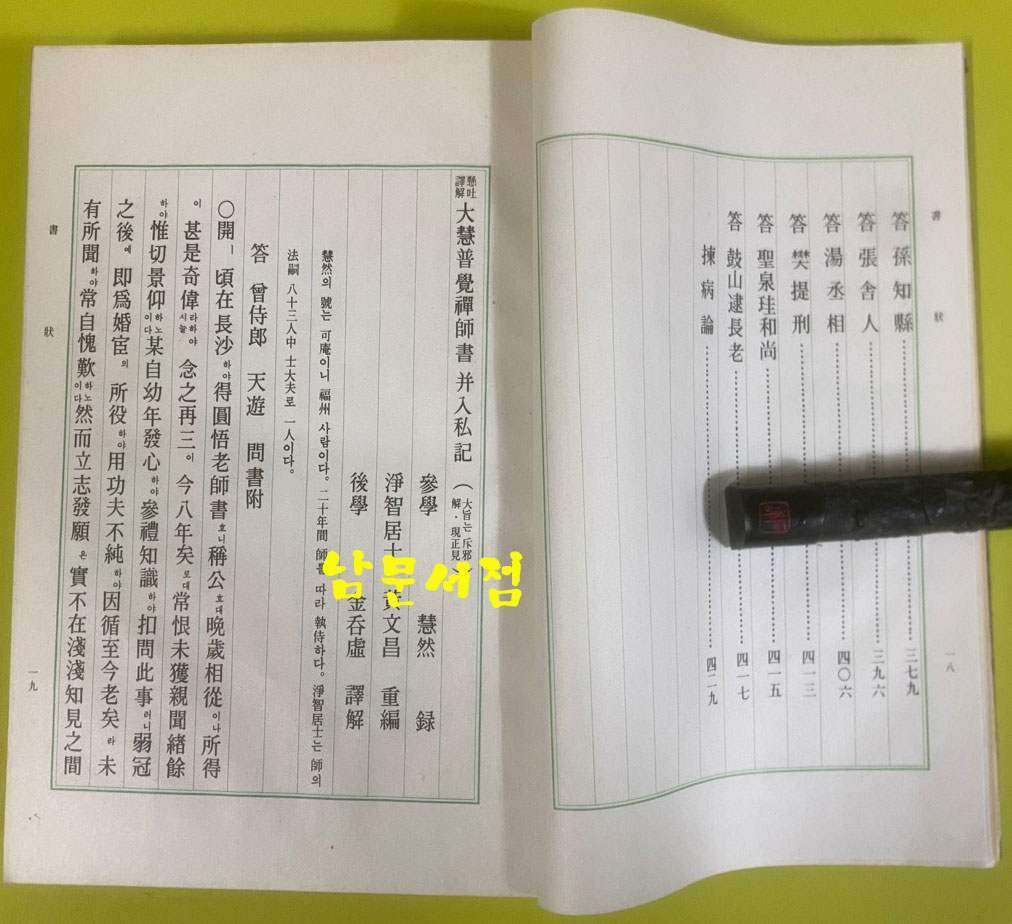 書狀
一八
答 孫知縣 三七九
答 張舍人 三九六
答 湯丞相 四〇六
答 樊提刑 四一三
答 聖泉珪和尚 四一五
答 鼓山逮長老 四一七
揀病論 四二九
懸吐譯解 大慧普覺禪師書 并入私記 (大旨는 斥邪解·現正見)
參學 慧然 録
淨智居士 黃文昌 重編
後學 金呑虛 譯解
慧然의 號는 可庵이니 福州 사람이다. 二十年間 師를 따라 執侍하다. 淨智居士는 師의
法嗣 八十三人中 士大夫로 一人이다.
答 曾侍郎 天遊 問書附
〇開ㅣ 頃在長沙하야 得圓悟老師書호니 稱公호대 晩歲相從이나 所得
이 甚是奇偉라하야시늘 念之再三이 今八年矣로대 常恨未獲親聞緖餘
하야 惟切景仰하노이다 某自幼年發心하야 參禮知識하야 扣問此事러니 弱冠
之後에 即爲婚宦의 所役하야 用功夫不純하야 因循至今老矣라 未
有所聞하야 常自愧歎하노이다 然而立志發願은 實不在淺淺知見之間
書狀
一九
남문서점